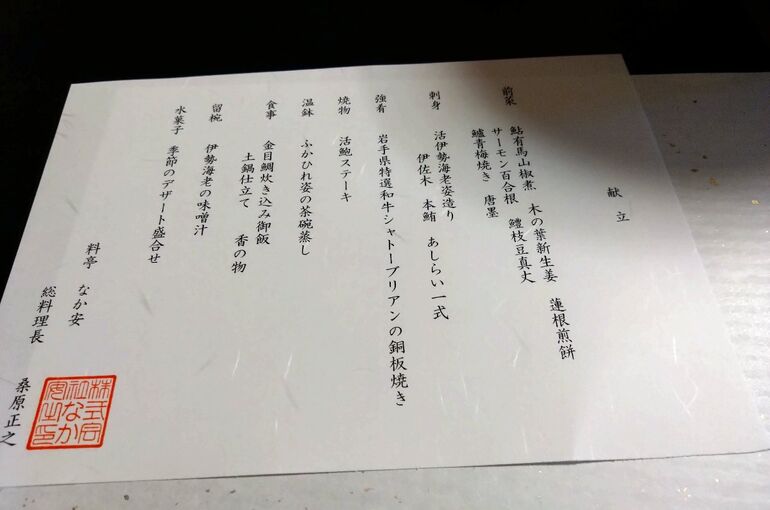 献立
前菜 鮎有馬山椒煮 木の葉新生姜 蓮根煎餅
サーモン百合根 鱧枝豆真丈
鱸青梅焼き 唐墨
刺身 活伊勢海老姿造り
伊佐木 本鮪 あしらい一式
強肴 岩手県特選和牛シャトーブリアンの銅板焼き
焼物 活鮑ステーキ
温鉢 ふかひれ姿の茶碗蒸し
食事 金目鯛炊き込み御飯
土鍋仕立て 香の物
留椀 伊勢海老の味噌汁
水菓子 季節のデザート盛合せ
料亭 なか安
総料理長
桑原正之
株式会
社なか
安之印